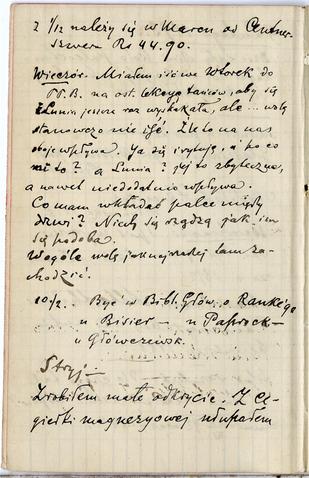 2 1/12 należy się w Marcu od Centner-
szwera Rs 44.90.
Wieczór. Miałem iść we Wtorek do
PP. B. na ost. lekcyę tańców, aby się
Lunia jeszcze raz wyskakała, ale ... wolę
stanowczo nie iść. Źle to na nas
oboje wpływa. Ja się irytuję, a po co
mi to? a Lunia? jej to zbyteczne,
a nawet niedodatnio wpływa.
Co mam wkładać palce między
drzwi? Niech się rządzą jak im
się podoba.
Wogóle wolę jaknajrzadziej tam za-
chodzić.
10/2. Być w Bibl. Głów. o Rankego
u Bisier — u Paprock—
u Główczewsk.
Stryj —
Zrobiłem małe odkrycie. Z ce-
giełki magnezyowej utłukłem